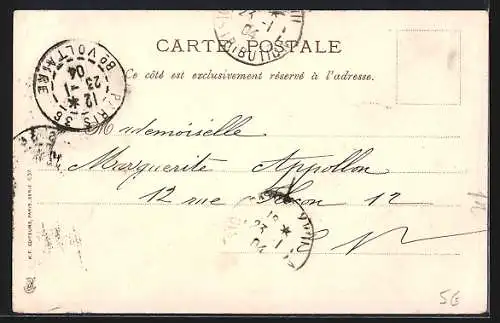 CARTE POSTALE
Ce côté est exclusivement réservé à l'adresse.
PARIS 36
12 *
23 -1
04
Bd VOLTAIRE
23 -1
04
DISTRIBUTION
Mademoiselle
Marguerite Appollon
12 rue 12
E V
23 -1
04
5E